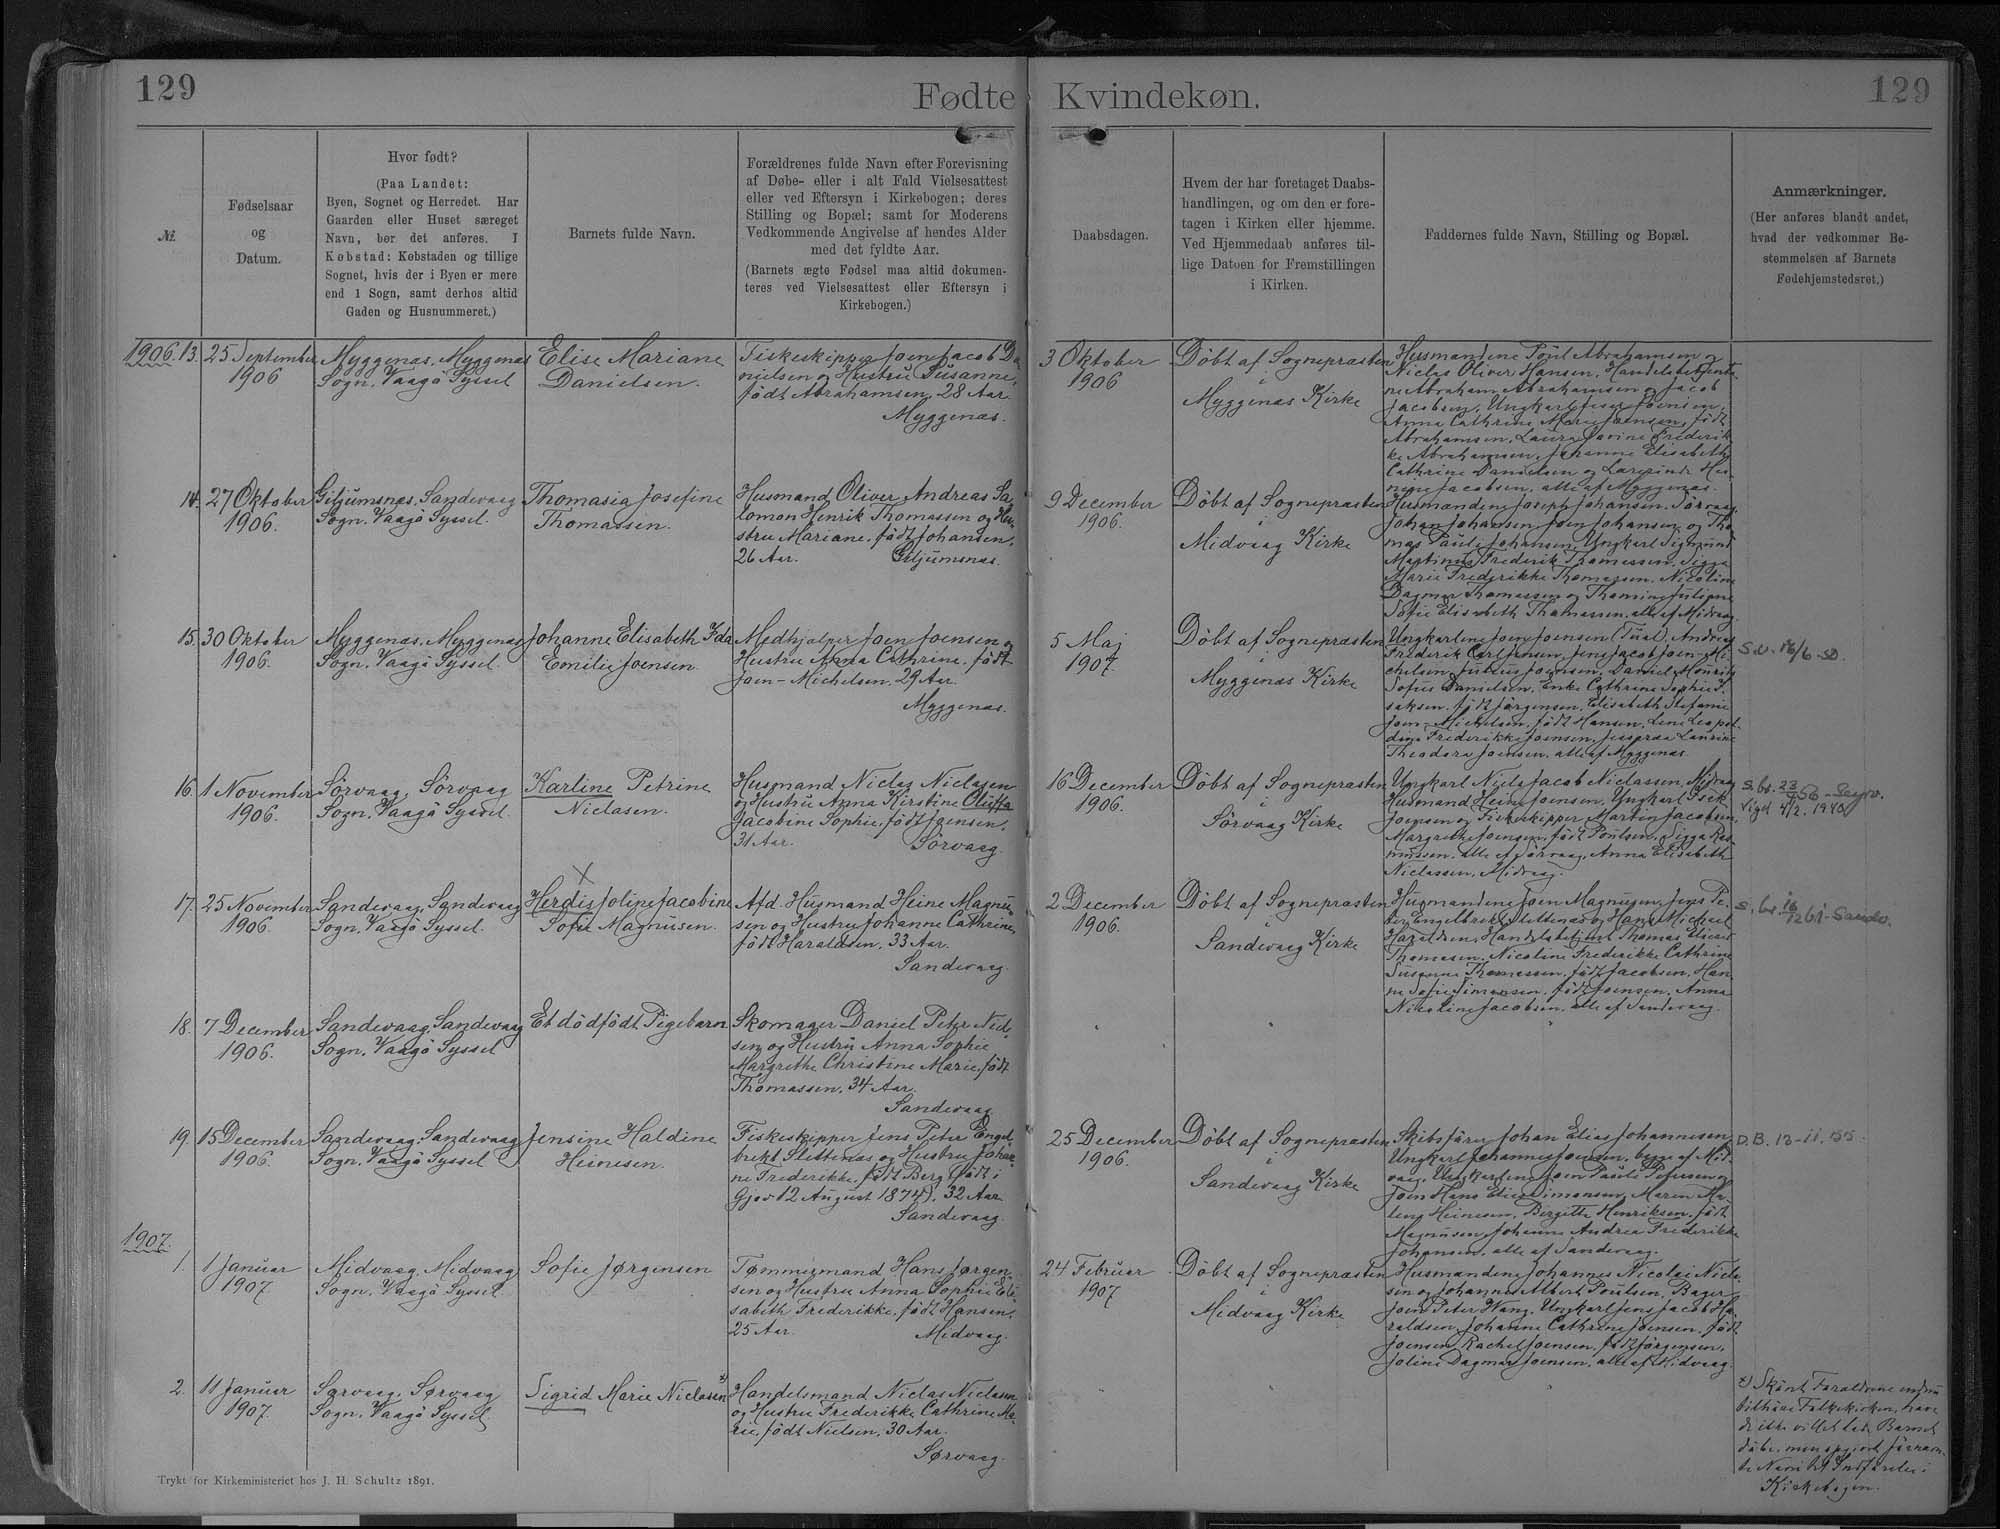 129
Fødte Kvindekøn.
129
Nr.
Fødselsaar
og
Datum.
Hvor født?
(Paa Landet:
Byen, Sognet og Herredet. Har
Gaarden eller Huset særeget
Navn, bør det anføres. I
Købstad: Købstaden og tillige
Sognet, hvis der i Byen er mere
end 1 Sogn, samt derhos altid
Gaden og Husnummeret.)
Barnets fulde Navn.
Forældrenes fulde Navn efter Forevisning
af Døbe- eller i alt Fald Vielsesattest
eller ved Eftersyn i Kirkebogen; deres
Stilling og Bopæl; samt for Moderens
Vedkommende Angivelse af hendes Alder
med det fyldte Aar.
(Barnets ægte Fødsel maa altid dokumen-
teres ved Vielsesattest eller Eftersyn i
Kirkebogen.)
Daabsdagen.
Hvem der har foretaget Daabs-
handlingen, og om den er fore-
tagen i Kirken eller hjemme.
Ved Hjemmedaab anføres til-
lige Datoen for Fremstillingen
i Kirken.
Faddernes fulde Navn, Stilling og Bopæl.
Anmærkninger.
(Her anføres blandt andet,
hvad der vedkommer Be-
stemmelsen af Barnets
Fødehjemstedsret.)
1906. 13.
25 September
1906
Myggenæs, Myggenæs
Sogn, Vaagö Syssel
Elise Mariane
Danielsen.
Fiskeskipper Joen Jacob Da-
nielsen og Hustru Susanne,
födt Abrahamsen, 28 Aar.
Myggenæs.
3 Oktober
1906
Döbt af Sognepræsten
i
Myggenæs Kirke
Husmændene Poul Abrahamsen og
Niclas Oliver Hansen, Handelsbetjente-
ne Abraham Abrahamsen og Jacob
Jacobsen, Ungkarl Joensen,
Anna Cathrine Marie Joensen, födt
Abrahamsen, Laura Frederik-
ke Abrahamsen, Johanne Elisabeth
Cathrine Danielsen og Lærerinde
Jacobsen, alle af Myggenæs.
14.
27 Oktober
1906.
Giljumsnæs, Sandevaag
Sogn, Vaagö Syssel.
Thomasia Josefine
Thomassen.
Husmand Oliver Andreas Sa-
lomon Henrik Thomassen og Hu-
stru Mariane, födt Johansen,
26 Aar.
Giljumsnæs.
9 December
1906.
Döbt af Sognepræsten
i
Midvaag Kirke
Husmændene Joseph Johansen, Sörvaag,
Johan Johansen, Joen Johansen og Tho-
mas Pauli Johansen, Ungkarl Sigmund
Martinus Frederik Thomassen, Sigga
Marie Frederikke Thomassen, Nicoline
Dagmar Thomassen og Thomine Juliane
Sofie Elisabeth Thomassen, alle af Midvaag.
15.
30 Oktober
1906.
Myggenæs, Myggenæs
Sogn, Vaagö Syssel.
Johanne Elisabeth Ida
Emilie Joensen
Medhjælper Joen Joensen og
Hustru Anna Cathrine, födt
Joen-Michelsen, 29 Aar.
Myggenæs.
5 Maj
1907.
Döbt af Sognepræsten
i
Myggenæs Kirke
Ungkarlene Joen Joensen, Andreas
Frederik Carl Jensen, Jens Jacob Joen-Mi-
chelsen, Julius Joensen, Daniel
Sofus Danielsen, Enke Cathrine Sophie I-
saksen, födt Jörgensen, Elisabeth Stefanie
Joen-Michelsen, födt Hansen, Lene Leopol-
dine Frederikke Joensen, Laurine
Theodora Joensen, alle af Myggenæs.
16.
1 November
1906.
Sörvaag, Sörvaag
Sogn, Vaagö Syssel.
Karline Petrine
Niclasen.
Husmand Niclas Niclasen
og Hustru Anna Kirstine Oluffa
Jacobine Sophie, födt Joensen,
31 Aar.
Sörvaag.
16 December
1906.
Döbt af Sognepræsten
i
Sörvaag Kirke
Ungkarl Niels Jacob Niclassen, Midvaag,
Husmand Heine Joensen, Ungkarl Isak
Joensen og Fiskeskipper Martin Jacobsen,
Margrethe Joensen, födt Poulsen, Sigga Ras-
mussen, alle af Sörvaag, Anna Elisabeth
Niclassen, Midvaag.
Vigd 4/2. 1940
17.
25 November
1906.
Sandevaag, Sandevaag
Sogn, Vaagö Syssel.
Herdis Joline Jacobine
Sofie Magnusen.
Afd. Husmand Heine Magnu-
sen og Hustru Johanne Cathrine,
födt Haraldsen, 33 Aar.
Sandevaag.
2 December
1906.
Döbt af Sognepræsten
i
Sandevaag Kirke
Husmændene Joen Magnusen, Jens Pe-
ter Engelbrekt Slettenæs og Hans Michael
Haraldsen, Handelsbetjent Thomas
Thomasen, Nicoline Frederikke Cathrine
Susanne Thomassen, födt Jacobsen, Han-
ne Sofie Simonsen, födt Joensen, Anna
Nicoline Jacobsen, alle af Sandevaag.
18.
7 December
1906.
Sandevaag, Sandevaag
Sogn, Vaagö Syssel
Et dödfödt Pigebarn
Skomager Daniel Peter Niel-
sen og Hustru Anna Sophie
Margrethe Christine Marie, födt
Thomassen, 34 Aar.
Sandevaag
19.
15 December
1906.
Sandevaag, Sandevaag
Sogn, Vaagö Syssel
Jensine Haldine
Heinesen.
Fiskeskipper Jens Peter Engel-
brekt Slettenæs og Hustru Johan-
ne Frederikke, födt Berg (födt i
Gjov 12 August 1874), 32 Aar
Sandevaag.
25 December
1906.
Döbt af Sognepræsten
i
Sandevaag Kirke
Skibsförer Johan Elias Johannesen,
Ungkarl Johannes Joensen, begge af Mid-
vaag, Ungkarlene Joen Pauli Petersen og
Joen Hans Elias Simonsen, Maren Ma-
lene Heinesen, Birgitte Henriksen, födt
Magnusen, Johanne Andrea Frederikke
Johansen, alle af Sandevaag.
D.B. 13-11-55.
1907.
1.
1 Januar
1907.
Midvaag, Midvaag
Sogn, Vaagö Syssel
Sofie Jørgensen
Tømmermand Hans Jørgen-
sen og Hustru Anna Sophie Eli-
sabeth Frederikke, födt Hansen,
25 Aar.
Midvaag.
24 Februar
1907
Döbt af Sognepræsten
i
Midvaag Kirke
Husmændene Johannes Nicolai Niel-
sen og Johannes Albert Poulsen, Bager
Joen Peter Wang, Ungkarl Jens Jacob Ha-
raldsen, Johanne Cathrine Joensen, födt
Joensen, Rachel Joensen, födt Jörgensen,
Joline Dagmar Joensen, alle af Midvaag.
2.
11 Januar
1907.
Sørvaag, Sørvaag
Sogn, Vaagö Syssel
Sigrid Marie Niclasen x)
Handelsmand Niclas Niclasen
og Hustru Frederikke Cathrine Ma-
rie, födt Nielsen, 30 Aar.
Sørvaag.
x) Skönt Forældrene endnu
tilhöre Folkekirken, have
de ikke villet lade Barnet
döbe, men opgivet fornævn-
te Navn til Indförelse i
Kirkebogen.
Trykt for Kirkeministeriet hos J. H. Schultz 1891.